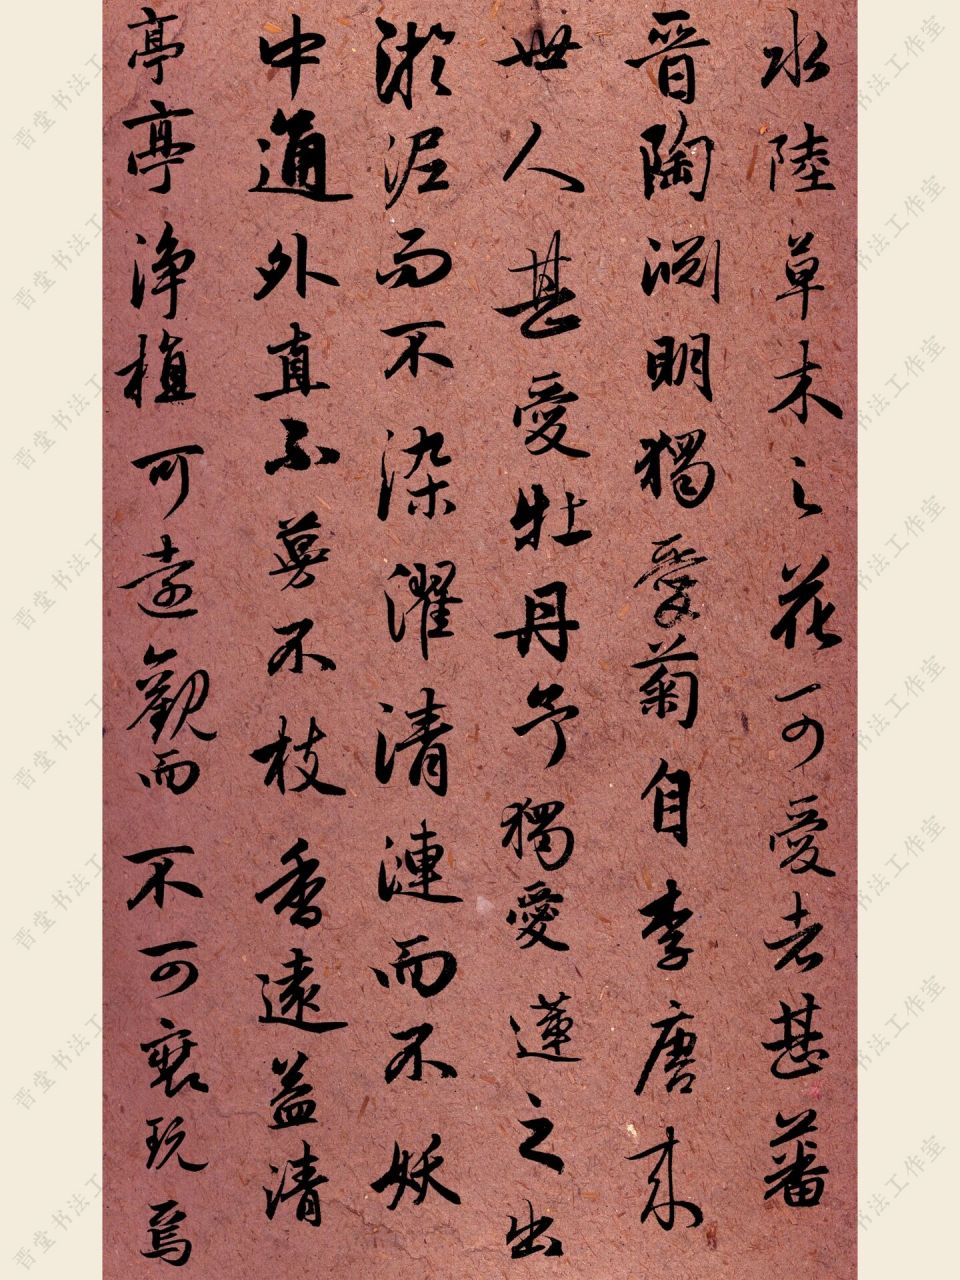 水陸草木之花可愛者甚蕃
晉陶淵明獨愛菊自李唐来
世人甚愛牡丹予獨愛蓮之出
淤泥而不染濯清漣而不妖
中通外直不蔓不枝香遠益清
亭亭浄植可遠觀而不可褻玩焉
晋堂书法工作室